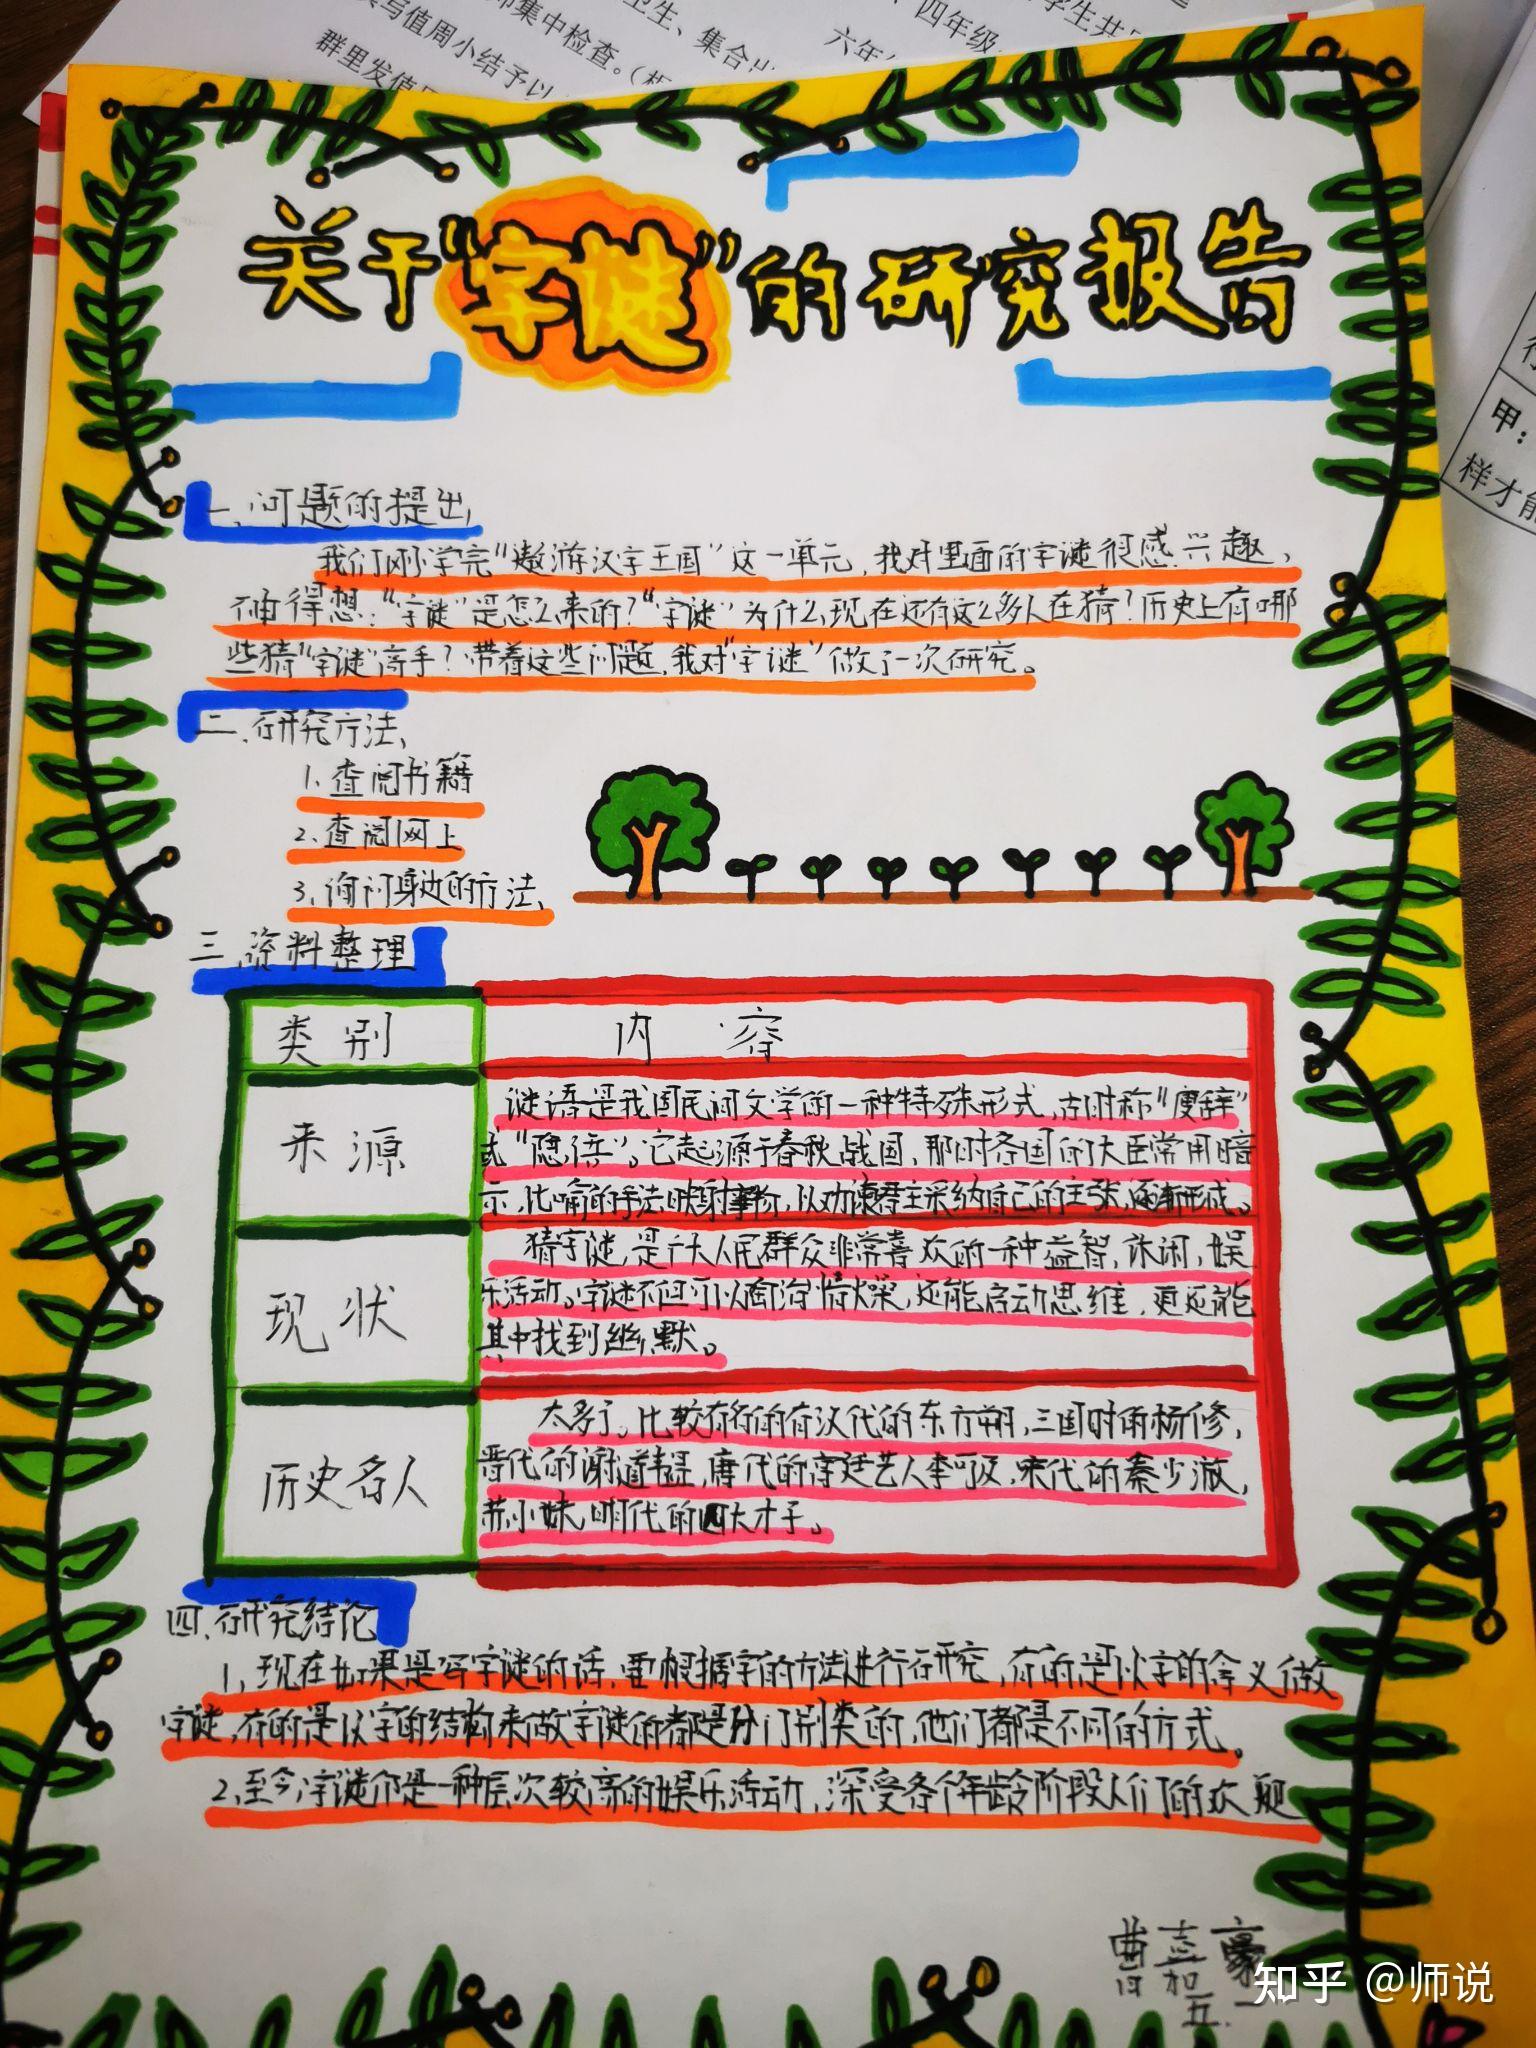 写值周小结予以
群里发值周
师集中检查。(板
卫生、集合出
六年级
、四年级
学生共
行
甲：
样才能
关于“字谜”的研究报告
一、问题的提出、
我们刚学完“遨游汉字王国”这一单元，我对里面的字谜很感兴趣、
不由得想：“字谜”是怎么来的？“字谜”为什么现在还有这么多人在猜？历史上有哪
些猜“字谜”高手？带着这些问题，我对“字谜”做了一次研究。
二、研究方法、
1、查阅书籍
2、查阅网上
3、询问身边的方法、
三、资料整理
类别 内容
来源
谜语是我国民间文学的一种特殊形式，古时称“廋辞”
或“隐语”。它起源于春秋战国，那时各国的大臣常用暗
示，比喻的手法映射事物，以劝谏君主采纳自己的主张，逐渐形成。
现状
猜字谜，是广大人民群众非常喜欢的一种益智，休闲，娱
乐活动。字谜不但可以陶冶情燥，还能启动思维，更还能
其中找到幽默。
历史名人
太多了。比较有名的有汉代的东方朔，三国时的杨修，
晋代的谢道韫，唐代的宫廷艺人李可及，宋代的秦少游，
苏小妹，明代的四大才子。
四、研究结论
1、现在如果是写字谜的话，要根据字的方法进行研究，有的是以字的含义做
字谜，有的是以字的结构来做字谜的都是分门别类的，他们都是不同的方式。
2、至今字谜仍是一种层次较高的娱乐活动，深受各个年龄阶段人们的欢迎
曹嘉豪
五一
知乎 @师说